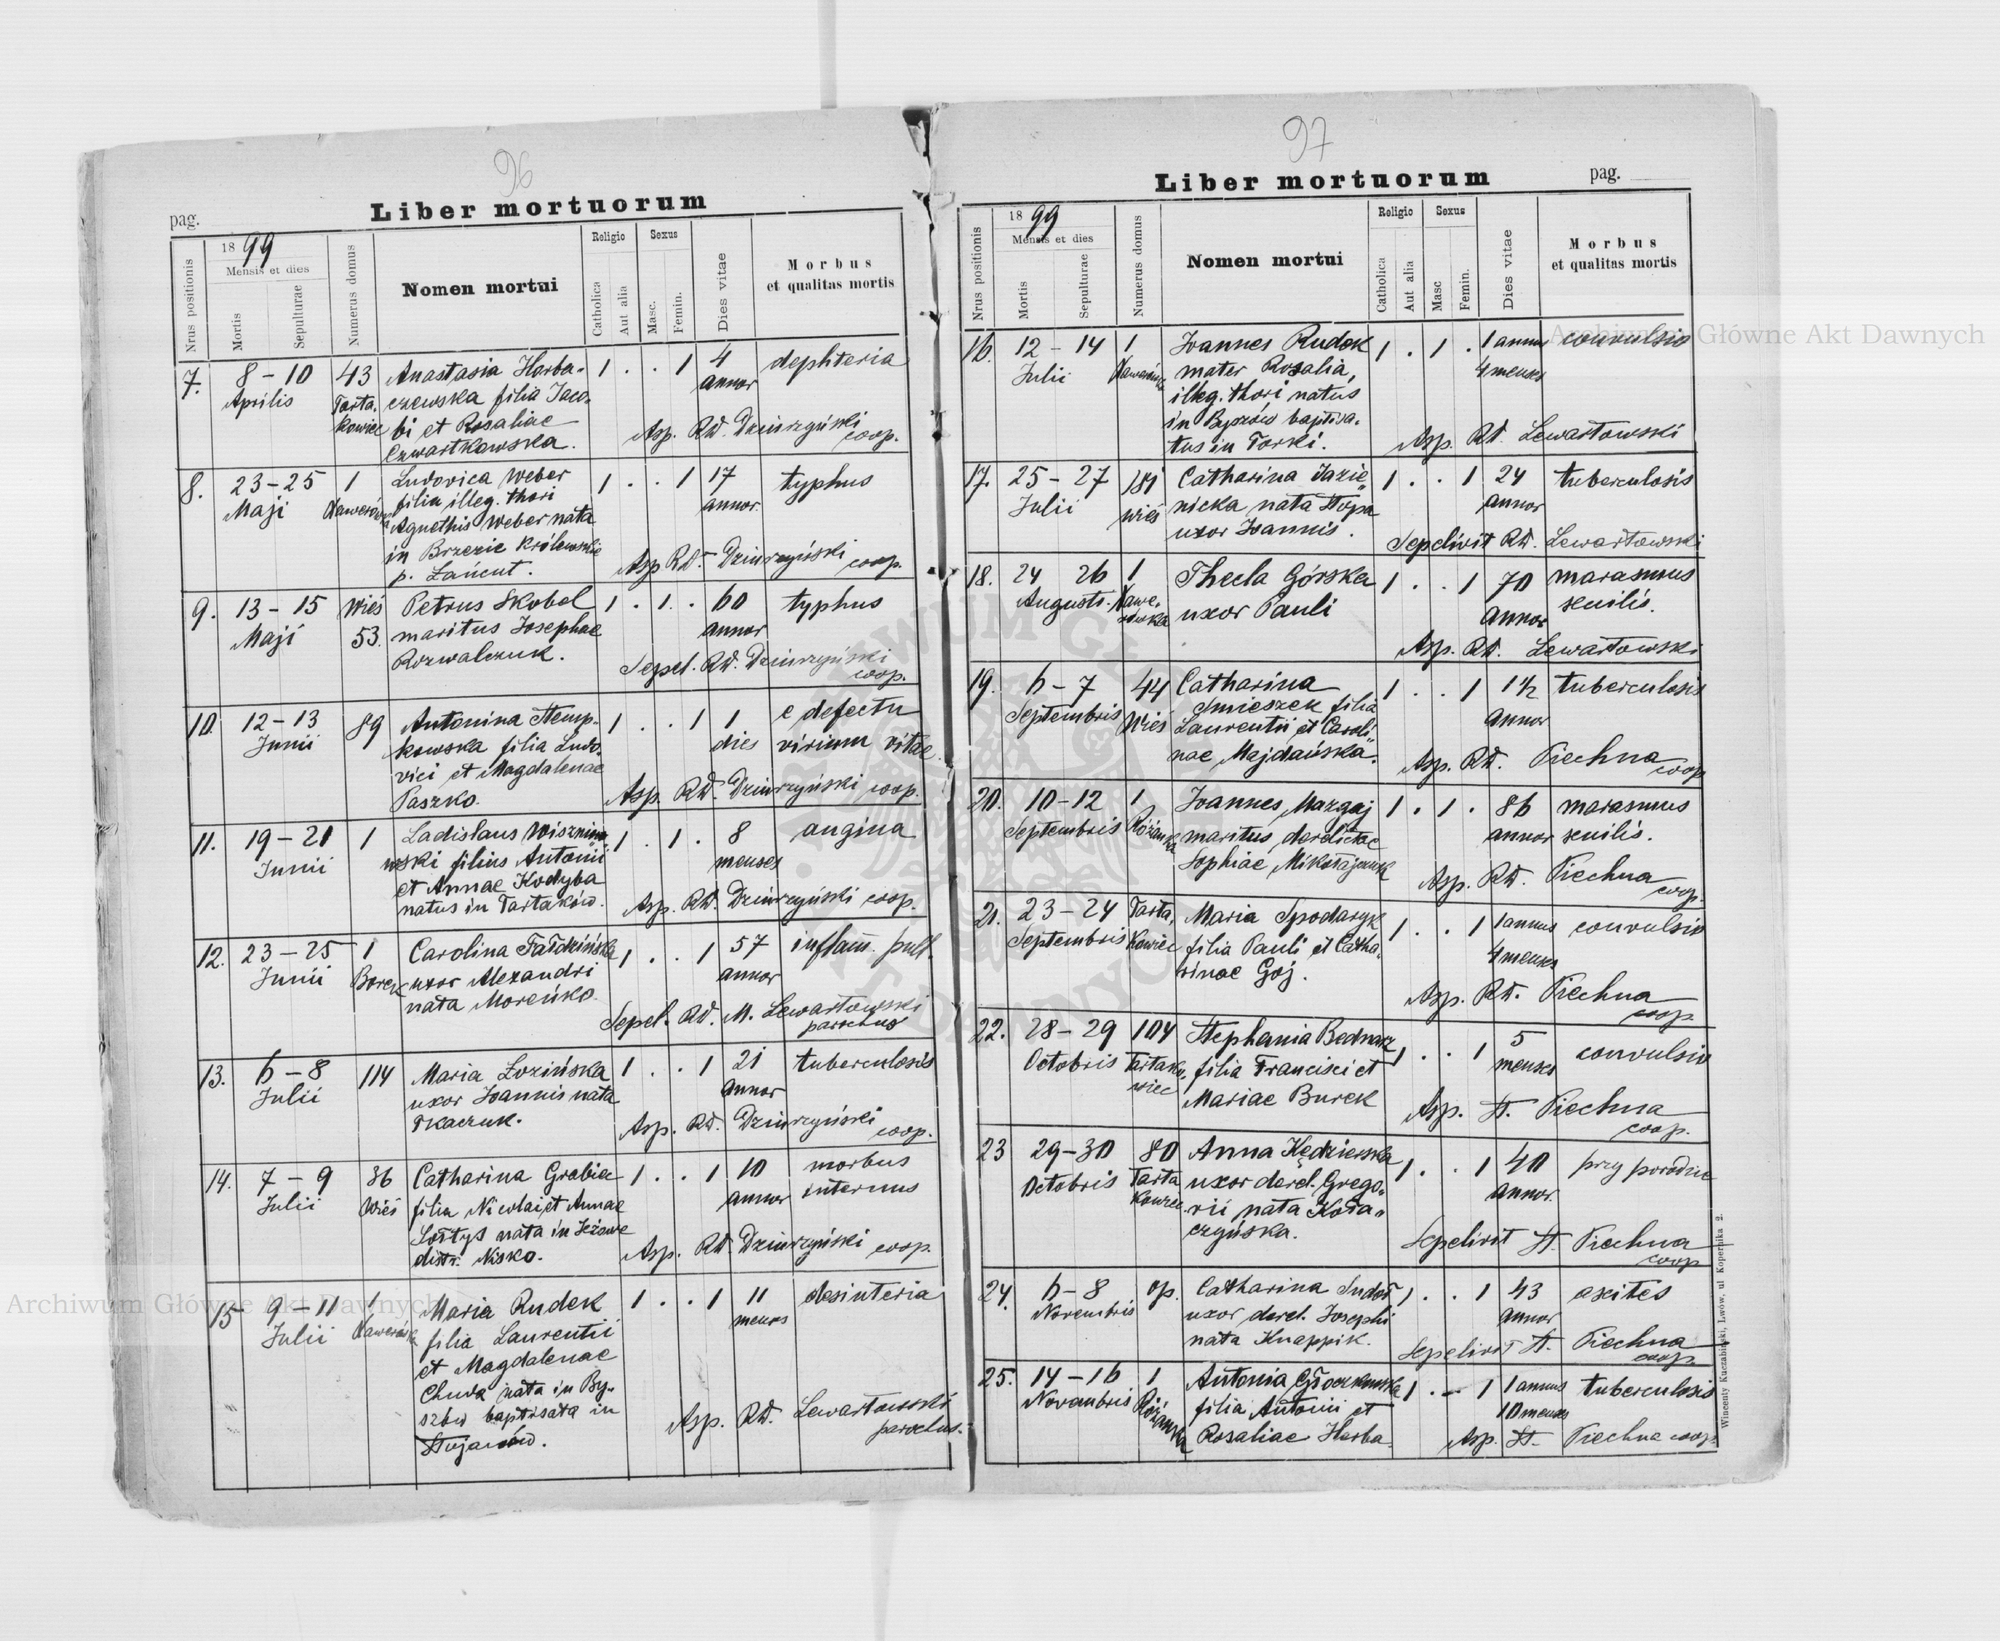 96
pag.
Liber mortuorum
Nrus positionis
1899
Mensis et dies
Mortis
Sepulturae
Numerus domus
Nomen mortui
Religio
Catholica
Aut alia
Sexus
Masc.
Femin.
Dies vitae
Morbus
et qualitas mortis
7. 8-10 43 Anastasia Horba- 1 . . 1 4 dephteria
Aprilis Tarta- czewska filia Jaco- annor
kowiec bi et Rosaliae Asp. Rd. Dziurzyński
Czwartkowska. coop.
8. 23-25 1 Ludovica Weber 1 . . 1 17 typhus
Maji filia illeg. thori annor.
Agnethis Weber nata
in Brzezie Królewskie Asp Rd. Dziurzyński
p. Łańcut. coop.
9. 13-15 Wieś Petrus Skobel 1 . 1 . 60 typhus
Maji 53. maritus Josephae annor
Rozwalczuk. Sepel. Rd. Dziurzyński
coop.
10. 12-13 89 Antonina Stemp- 1 . . 1 1 e defectu
Junii kowska filia Ludo- dies virium vitae.
vici et Magdalenae
Paszko. Asp. Rd. Dziurzyński coop.
11. 19-21 1 Ladislaus 1 . 1 . 8 angina
Junii filius Antonii menses
et Annae Kodyba
natus in Tartaków. Asp. Rd. Dziurzyński coop.
12. 23-25 1 Carolina 1 . . 1 57 inflam. pulm.
Junii Borek uxor Alexandri annor
nata Moreńko. Sepel. Rd. M. Lewartowski
parochus
13. 6-8 114 Maria Łozińska 1 . . 1 21 tuberculosis
Julii uxor Joannis nata annor
Tkaczuk. Asp. Rd. Dziurzyński
coop.
14. 7-9 36 Catharina Grabiec 1 . . 1 10 morbus
Julii Wieś filia Nicolai et Annae annor internus
Sołtys nata in Jeżowe
distr. Nisko. Asp. Rd. Dziurzyński coop.
15 9-11 1 Maria Rudek 1 . . 1 11 desinteria
Julii filia Laurentii menses
et Magdalenae
nata in By-
szów baptisata in Asp. Rd. Lewartowski
Stojanów. parochus.
97
Liber mortuorum
pag.
Nrus positionis
1899
Mensis et dies
Mortis
Sepulturae
Numerus domus
Nomen mortui
Religio
Catholica
Aut alia
Sexus
Masc
Femin.
Dies vitae
Morbus
et qualitas mortis
16. 12-14 1 Joannes Rudek 1 . 1 . 1 annus convulsio
Julii mater Rosalia, 4 menses
illeg. thori natus
in Byszów baptisa-
tus in Torki. Asp. Rd. Lewartowski
17. 25-27 181 Catharina Jazie- 1 . . 1 24 tuberculosis
Julii Wieś nicka nata Stopa annor
uxor Joannis. Sepelivit Rd. Lewartowski
18. 24 26 1 Thecla Górska 1 . . 1 70 marasmus
Augusti. uxor Pauli annor senilis.
Asp. Rd. Lewartowski
19. 6-7 44 Catharina 1 . . 1 1½ tuberculosis
Septembris Wieś Smieszek filia annor
Laurentii et Caroli-
nae Majdańska. Asp. Rd. Piechna
coop
20. 10-12 1 Joannes Mazgaj 1 . 1 . 86 marasmus
Septembris Różanka maritus derelictae annor senilis.
Sophiae Mikołajczuk Asp. Rd. Piechna
coop.
21. 23-24 Tarta- Maria Spodaryk 1 . . 1 1 annus convulsio
Septembris kowiec filia Pauli et Catha- 4 menses
rinae Goj. Asp. Rd. Piechna
coop.
22. 28-29 104 Stephania Bednarz 1 . . 1 5 convulsio
Octobris Tartako- filia Francisci et menses
wiec Mariae Burek Asp. St. Piechna
coop.
23 29-30 80 Anna Kędzierska 1 . . 1 40 przy porodzie
Octobris Tarta uxor derel. Grego- annor.
kowiec rii nata Koła-
czyńska. Sepelivit St. Piechna
coop
24. 6-8 op. Catharina Sudoł 1 . . 1 43 ascites
Novembris uxor derel. Josephi annor
nata Knappik. Sepelivit St. Piechna
coop
25. 14-16 1 Antonia Głoczkowska 1 . - 1 1 annus tuberculosis
Novembris Różanka filia Antonii et 10 menses
Rosaliae Horba. Asp. St. Piechna coop.
Wincenty Kuczabiński, Lwów, ul Kopernika 2.
Archiwum Główne Akt Dawnych
Archiwum Główne Akt Dawnych